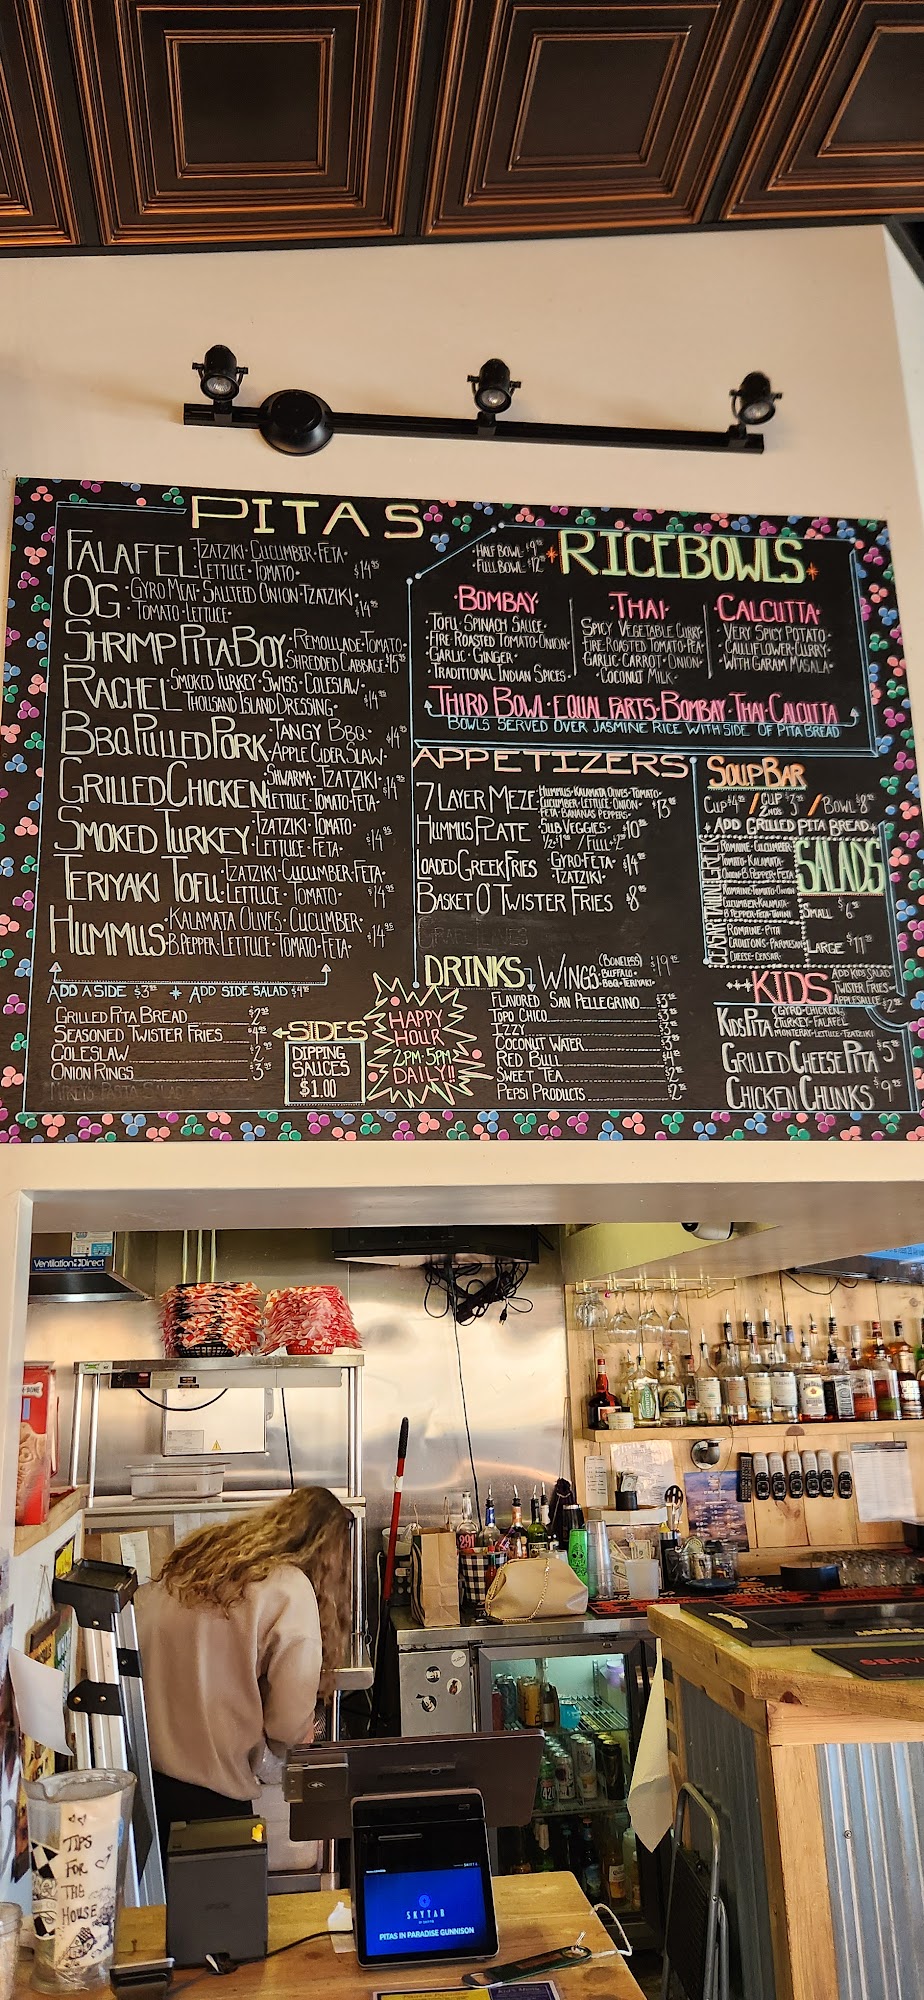 PITAS
FALAFEL · TZATZIKI · CUCUMBER · FETA ·
LETTUCE · TOMATO · $14.95
OG · GYRO MEAT · SALLTEED ONION · TZATZIKI ·
TOMATO · LETTUCE · $14.95
SHRIMP PITA BOY · REMOLLADE · TOMATO ·
SHREDDED CABBAGE · $15.95
RACHEL · SMOKED TURKEY · SWISS · COLESLAW ·
THOUSAND ISLAND DRESSING · $14.95
BBQ PULLED PORK · TANGY BBQ ·
APPLE CIDER SLAW · $14.95
GRILLED CHICKEN · SHWARMA · TZATZIKI ·
LETTUCE · TOMATO · FETA · $14.95
SMOKED TURKEY · TZATZIKI · TOMATO ·
LETTUCE · FETA · $14.95
TERIYAKI TOFU · TZATZIKI · CUCUMBER · FETA ·
LETTUCE · TOMATO · $14.95
HUMMUS · KALAMATA OLIVES · CUCUMBER ·
B.PEPPER · LETTUCE · TOMATO · FETA · $14.95
ADD A SIDE $3.95 * ADD SIDE SALAD $4.95
GRILLED PITA BREAD $2
SEASONED TWISTER FRIES $4.95
COLESLAW $2
ONION RINGS $3
SIDES
DIPPING
SAUCES
$1.00
HAPPY
HOUR
2PM-5PM
DAILY!!
· HALF BOWL · $9.95
· FULL BOWL · $12.95
RICE BOWLS
· BOMBAY ·
TOFU · SPINACH SAUCE ·
FIRE ROASTED TOMATO · ONION ·
GARLIC · GINGER ·
· TRADITIONAL INDIAN SPICES ·
· THAI ·
SPICY VEGETABLE CURRY ·
FIRE ROASTED TOMATO · PEA ·
GARLIC · CARROT · ONION ·
· COCONUT MILK ·
CALCUTTA ·
VERY SPICY POTATO ·
CALLIFLOWER · CURRY ·
· WITH GARAM MASALA ·
THIRD BOWL · EQUAL PARTS · BOMBAY · THAI · CALCUTTA
BOWLS SERVED OVER JASMINE RICE WITH SIDE OF PITA BREAD
APPETIZERS
7 LAYER MEZE · HUMMUS · KALAMATA OLIVES · TOMATO ·
CUCUMBER · LETTUCE · ONION ·
FETA · BANANAS PEPPERS · $13.95
HUMMUS PLATE · SUB VEGGIES ·
1/2 · $1.00 / FULL · $2.00 $10.95
LOADED GREEK FRIES · GYRO · FETA ·
TZATZIKI · $14.95
BASKET O TWISTER FRIES $8.95
GRAPE LEAVES
WINGS · (BONELESS)
· BUFFALO ·
· BBQ · TERIYAKI · $19.95
DRINKS
FLAVORED SAN PELLEGRINO $3
TOPO CHICO $3
IZZY $3
COCONUT WATER $3
RED BULL $4
SWEET TEA $2
PEPSI PRODUCTS $2
SOUP BAR
CUP $4.95 / CUP 2NDS $3.95 // BOWL $8.95
· ADD GRILLED PITA BREAD ·
SALADS
GREEK
ROMAINE · CUCUMBER ·
TOMATO · KALAMATA ·
ONION · B.PEPPER · FETA
TAHINI
ROMAINE · TOMATO · ONION
CUCUMBER · KALAMATA ·
B.PEPPER · FETA · TAHINI
CEASAR
ROMAINE · PITA
CROUTONS · PARMESAN
CHEESE · CEASAR ·
SMALL $6.95
LARGE $11.95
KIDS
ADD KIDS SALAD
TWISTER FRIES ·
APPLESAUCE $2
KIDS PITA · GYRO · CHICKEN ·
TURKEY · FALAFEL
MONTEREY · LETTUCE · TZATZIKI
GRILLED CHEESE PITA $5
CHICKEN CHUNKS $9.95
Ventilation Direct
291
TIPS
FOR
THE
HOUSE
SKYTAB
PITAS IN PARADISE GUNNISON